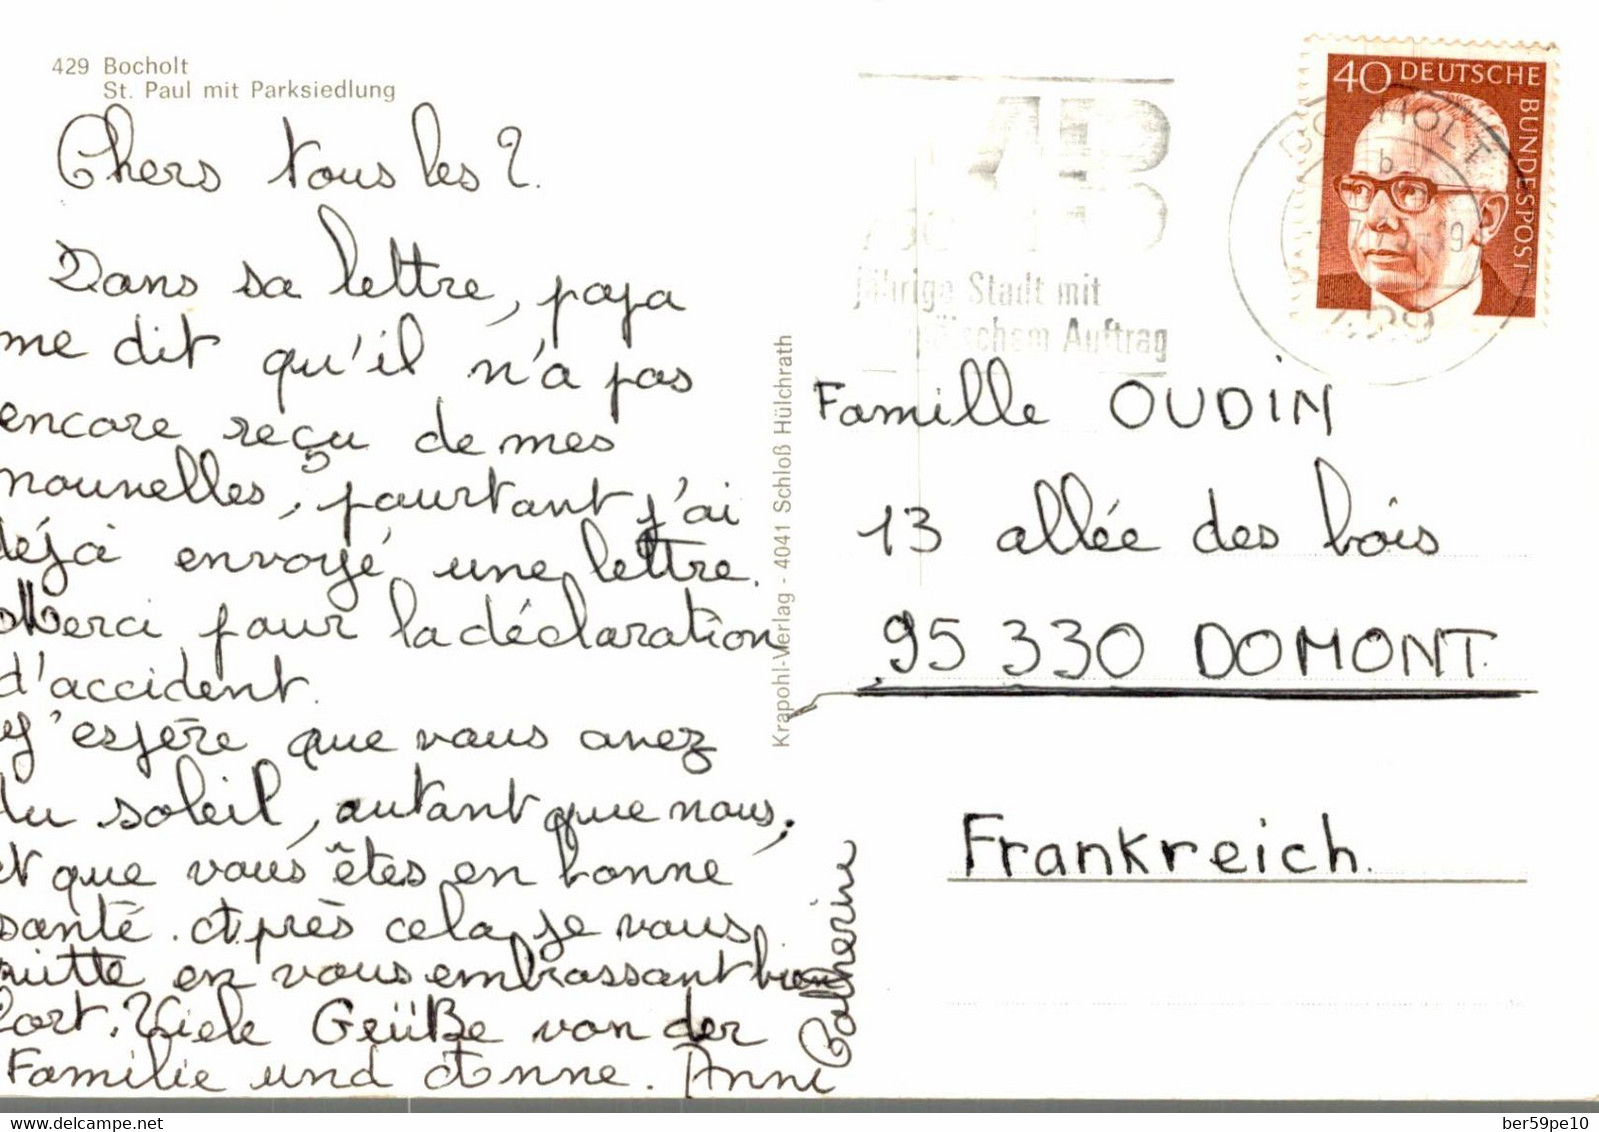 429 Bocholt
St. Paul mit Parksiedlung
Chers tous les 2.
Dans sa lettre, papa
me dit qu'il n'a pas
encore reçu de mes
nouvelles, pourtant j'ai
déjà envoyé une lettre.
Merci pour la déclaration
d'accident.
J'espère que vous avez
du soleil, autant que nous,
et que vous êtes en bonne
santé. Après cela, je vous
quitte en vous embrassant bien
fort. Viele Grüße von der
Familie und Anne. Anne
Catherine
Krapohl-Verlag - 4041 Schloß Hülchrath
jährige Stadt mit
Auftrag
40 DEUTSCHE
BUNDESPOST
BOCHOLT
b
Famille OUDIN
13 allée des bois
95 330 DOMONT.
Frankreich.
delcampe.net
ber59pe10